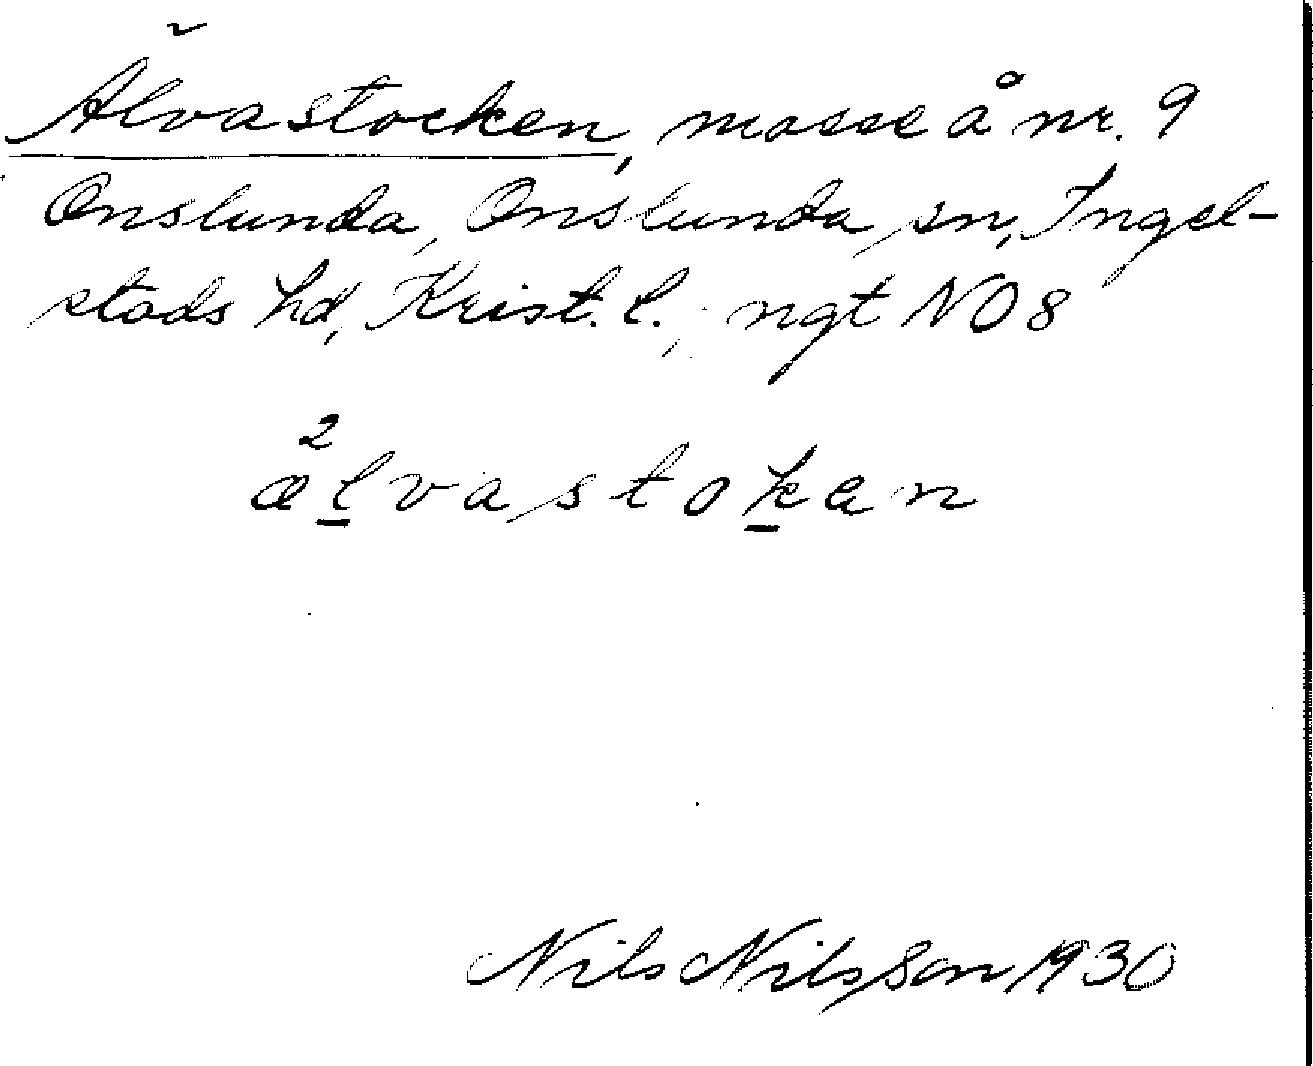 Älvastocken, mosse å nr. 9
Onslunda, Onslunda sn, Ingel-
stads hd, Krist. l.; ngt NO 8
æ²lvastokan
Nils Nilsson 1930